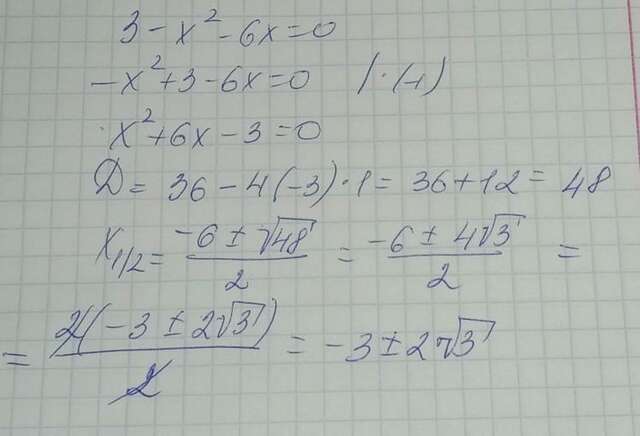 3 - x² - 6x = 0
-x² + 3 - 6x = 0 | · (-1)
x² + 6x - 3 = 0
D = 36 - 4(-3) · 1 = 36 + 12 = 48
x₁/₂ = (-6 ± √48)/2 = (-6 ± 4√3)/2 =
= 2(-3 ± 2√3)/2 = -3 ± 2√3